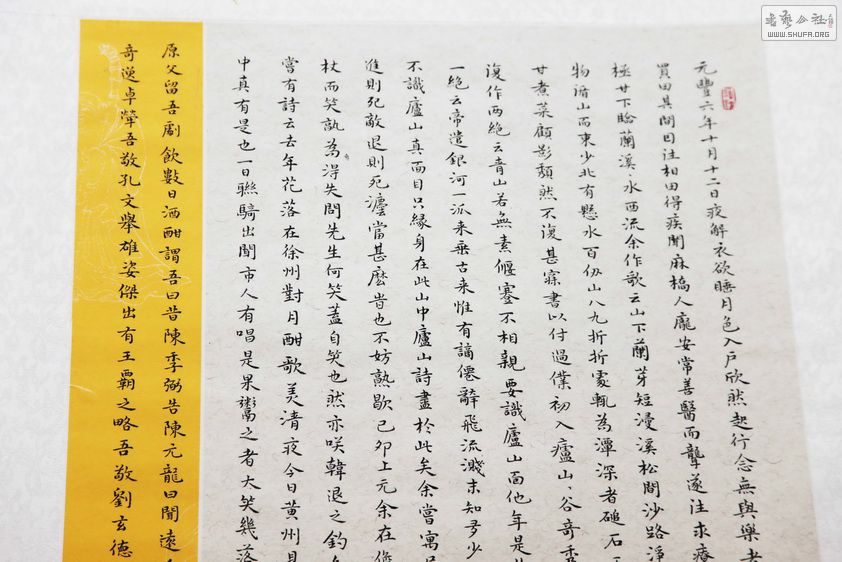 元豐六年十月十二日夜解衣欲睡月色入戶欣然起行念無與樂者
買田其間因往相田得疾聞麻橋人龐安常善醫而聾遂往求療
極甘下臨蘭溪水西流余作歌云山下蘭芽短浸溪松間沙路淨
物 山而東少北有懸水百仞山八九折折處輒為潭深者磓石
甘煮菜顧影頹然不復甚寐書以付過僕初入廬山谷奇秀
復作兩絕云青山若無素偃蹇不相親要識廬山面他年是
一絕云帝遣銀河一派來乘古來惟有謫僊辭飛流濺沫知多少
不識廬山真面目只緣身在此山中廬山詩盡於此矣余嘗寓
進則死敵退則死灋當甚麼昔也不妨熟歇己卯上元余在儋
杖而笑孰為得失問先生何笑蓋自笑也然亦咲韓退之釣
嘗有詩云去年花落在徐州對月酣歌美清夜今日黃州見
中真有是也一日聯騎出聞市人有唱是果鬻之者大笑幾落
原父留吾劇飲數日酒酣謂吾曰昔陳季弼告陳元龍曰聞遠
奇逸卓犖吾敬孔文舉雄姿傑出有王霸之略吾敬劉玄德
書藝公社
WWW.SHUFA.ORG